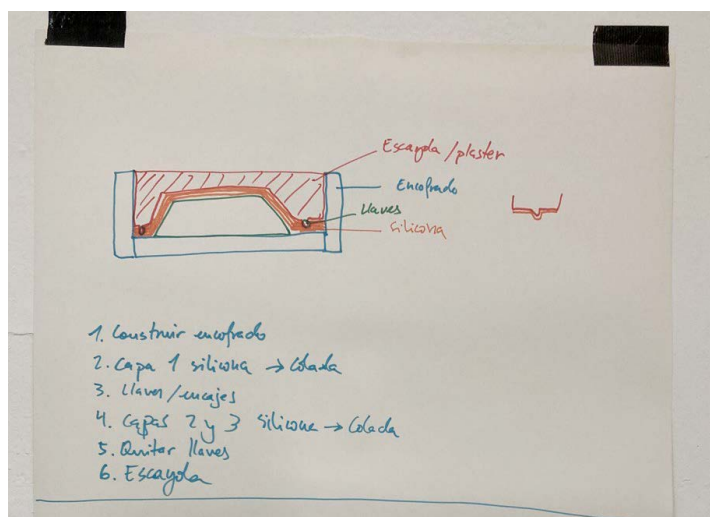 Escayola/plaster
Encofrado
Llaves
Silicona
1. Construir encofrado
2. Capa 1 silicona → Colada
3. Llaves/encajes
4. Capas 2 y 3 silicona → Colada
5. Quitar llaves
6. Escayola